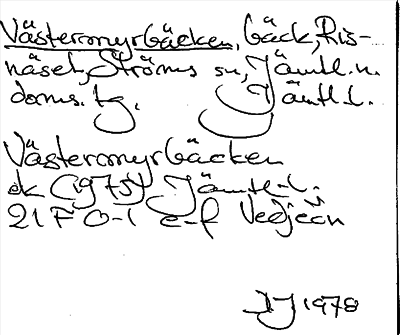 Västeromyrbäcken, bäck, Ris-
näset, Ströms sn, Jämtl. n.
doms. tg. Jämtl. l.
Västeromyrbäcken
ek (1975) Jämtl-l.
21F 0-1 e-f Vedjeön
IJ 1978